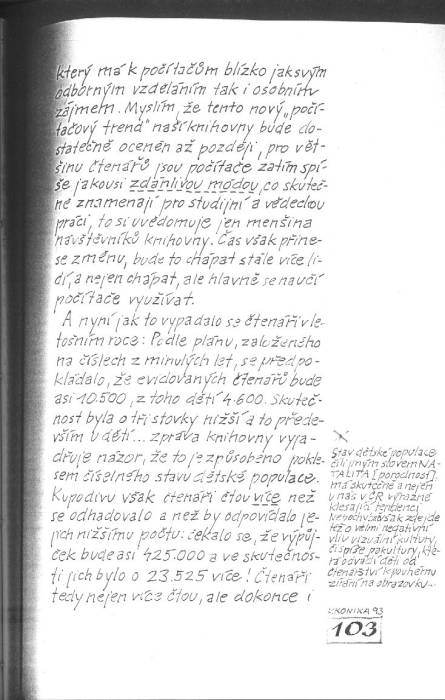 který má k počítačům blízko jak svým
odborným vzděláním tak i osobním
zájmem. Myslím, že tento nový „počí-
tačový trend" naší knihovny bude do-
statečně oceněn až později, pro vět-
šinu čtenářů jsou počítače zatím spí-
še jakousi zdánlivou módou, co skuteč-
ně znamenají pro studijní a vědeckou
práci, to si uvědomuje jen menšina
návštěvníků knihovny. Čas však přine-
se změnu, bude to chápat stále více li-
dí, a nejen chápat, ale hlavně se naučí
počítače využívat.
A nyní jak to vypadalo se čtenáři v le-
tošním roce: Podle plánu, založeného
na číslech z minulých let, se předpo-
kládalo, že evidovaných čtenářů bude
asi 10.500, z toho dětí 4.600. Skuteč-
nost byla o tři stovky nižší a to přede-
vším u dětí... zpráva knihovny vyja-
dřuje názor, že to je způsobeno pokle-
sem číselného stavu dětské populace.
Kupodivu však čtenáři čtou více než
se odhadovalo a než by odpovídalo je-
jich nižšímu počtu: čekalo se, že výpůj-
ček bude asi 425.000 a ve skutečnos-
ti jich bylo o 23.525 více! Čtenáři
tedy nejen více čtou, ale dokonce i
Stav dětské populace
čili jiným slovem NA-
TALITA [porodnost]
má skutečně a nejen
u nás v ČR výrazně
klesající tendenci.
však zde jde
též o velmi negativní
vliv vizuální kultury,
či spíše pakultury, kte-
rá odvádí děti od
čtenářství k pouhému
zírání na obrazovku...
KRONIKA 93
103